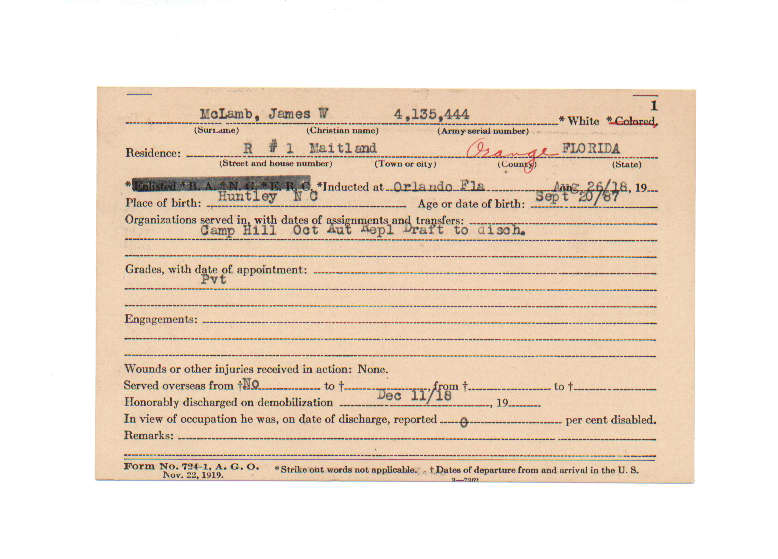 1
McLamb, James W 4,135,444 * White * Colored,
(Surname) (Christian name) (Army serial number)
Residence: R # 1 Maitland Orange FLORIDA
(Street and house number) (Town or city) (County) (State)
* Enlisted * R. A. * N. G. * E. R. C. *Inducted at Orlando Fla Aug 26/18, 19
Place of birth: Huntley N C Age or date of birth: Sept 20/87
Organizations served in, with dates of assignments and transfers:
Camp Hill Oct Aut Repl Draft to disch.
Grades, with date of appointment:
Pvt
Engagements:
Wounds or other injuries received in action: None.
Served overseas from † No to †, from † to †
Honorably discharged on demobilization Dec 11/18, 19
In view of occupation he was, on date of discharge, reported 0 per cent disabled.
Remarks:
Form No. 724-1, A. G. O. * Strike out words not applicable. † Dates of departure from and arrival in the U. S.
Nov. 22, 1919.